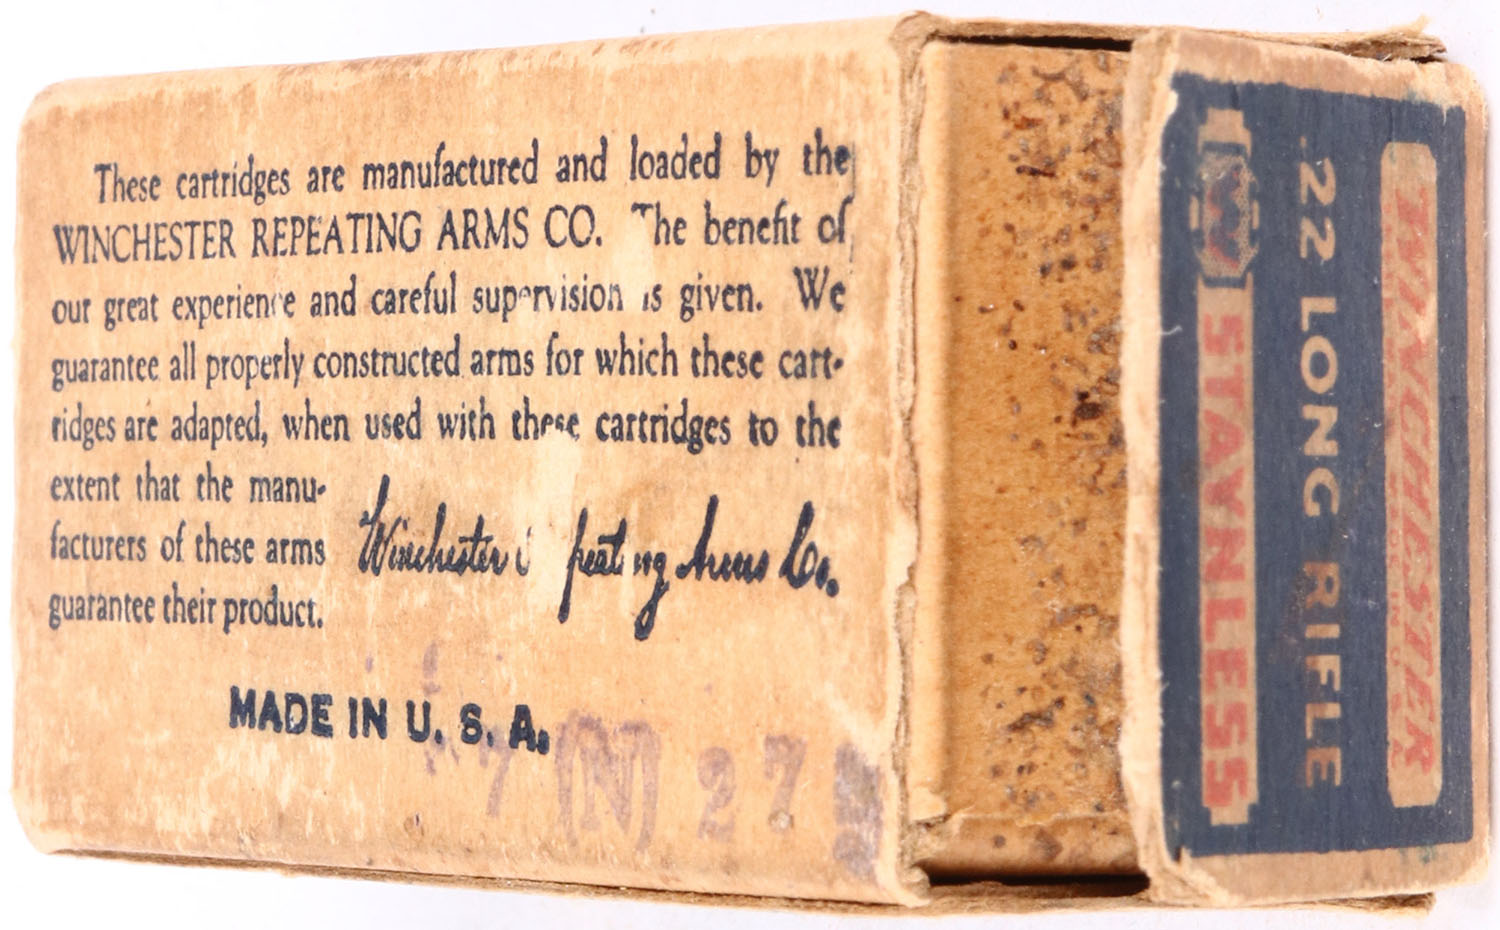 These cartridges are manufactured and loaded by the
WINCHESTER REPEATING ARMS CO. The benefit of
our great experience and careful supervision is given. We
guarantee all properly constructed arms for which these cart-
ridges are adapted, when used with these cartridges to the
extent that the manu-
facturers of these arms
guarantee their product.
Winchester Repeating Arms Co.
MADE IN U. S. A.
7 (N) 27
WINCHESTER
.22 LONG RIFLE
W STAYNLESS